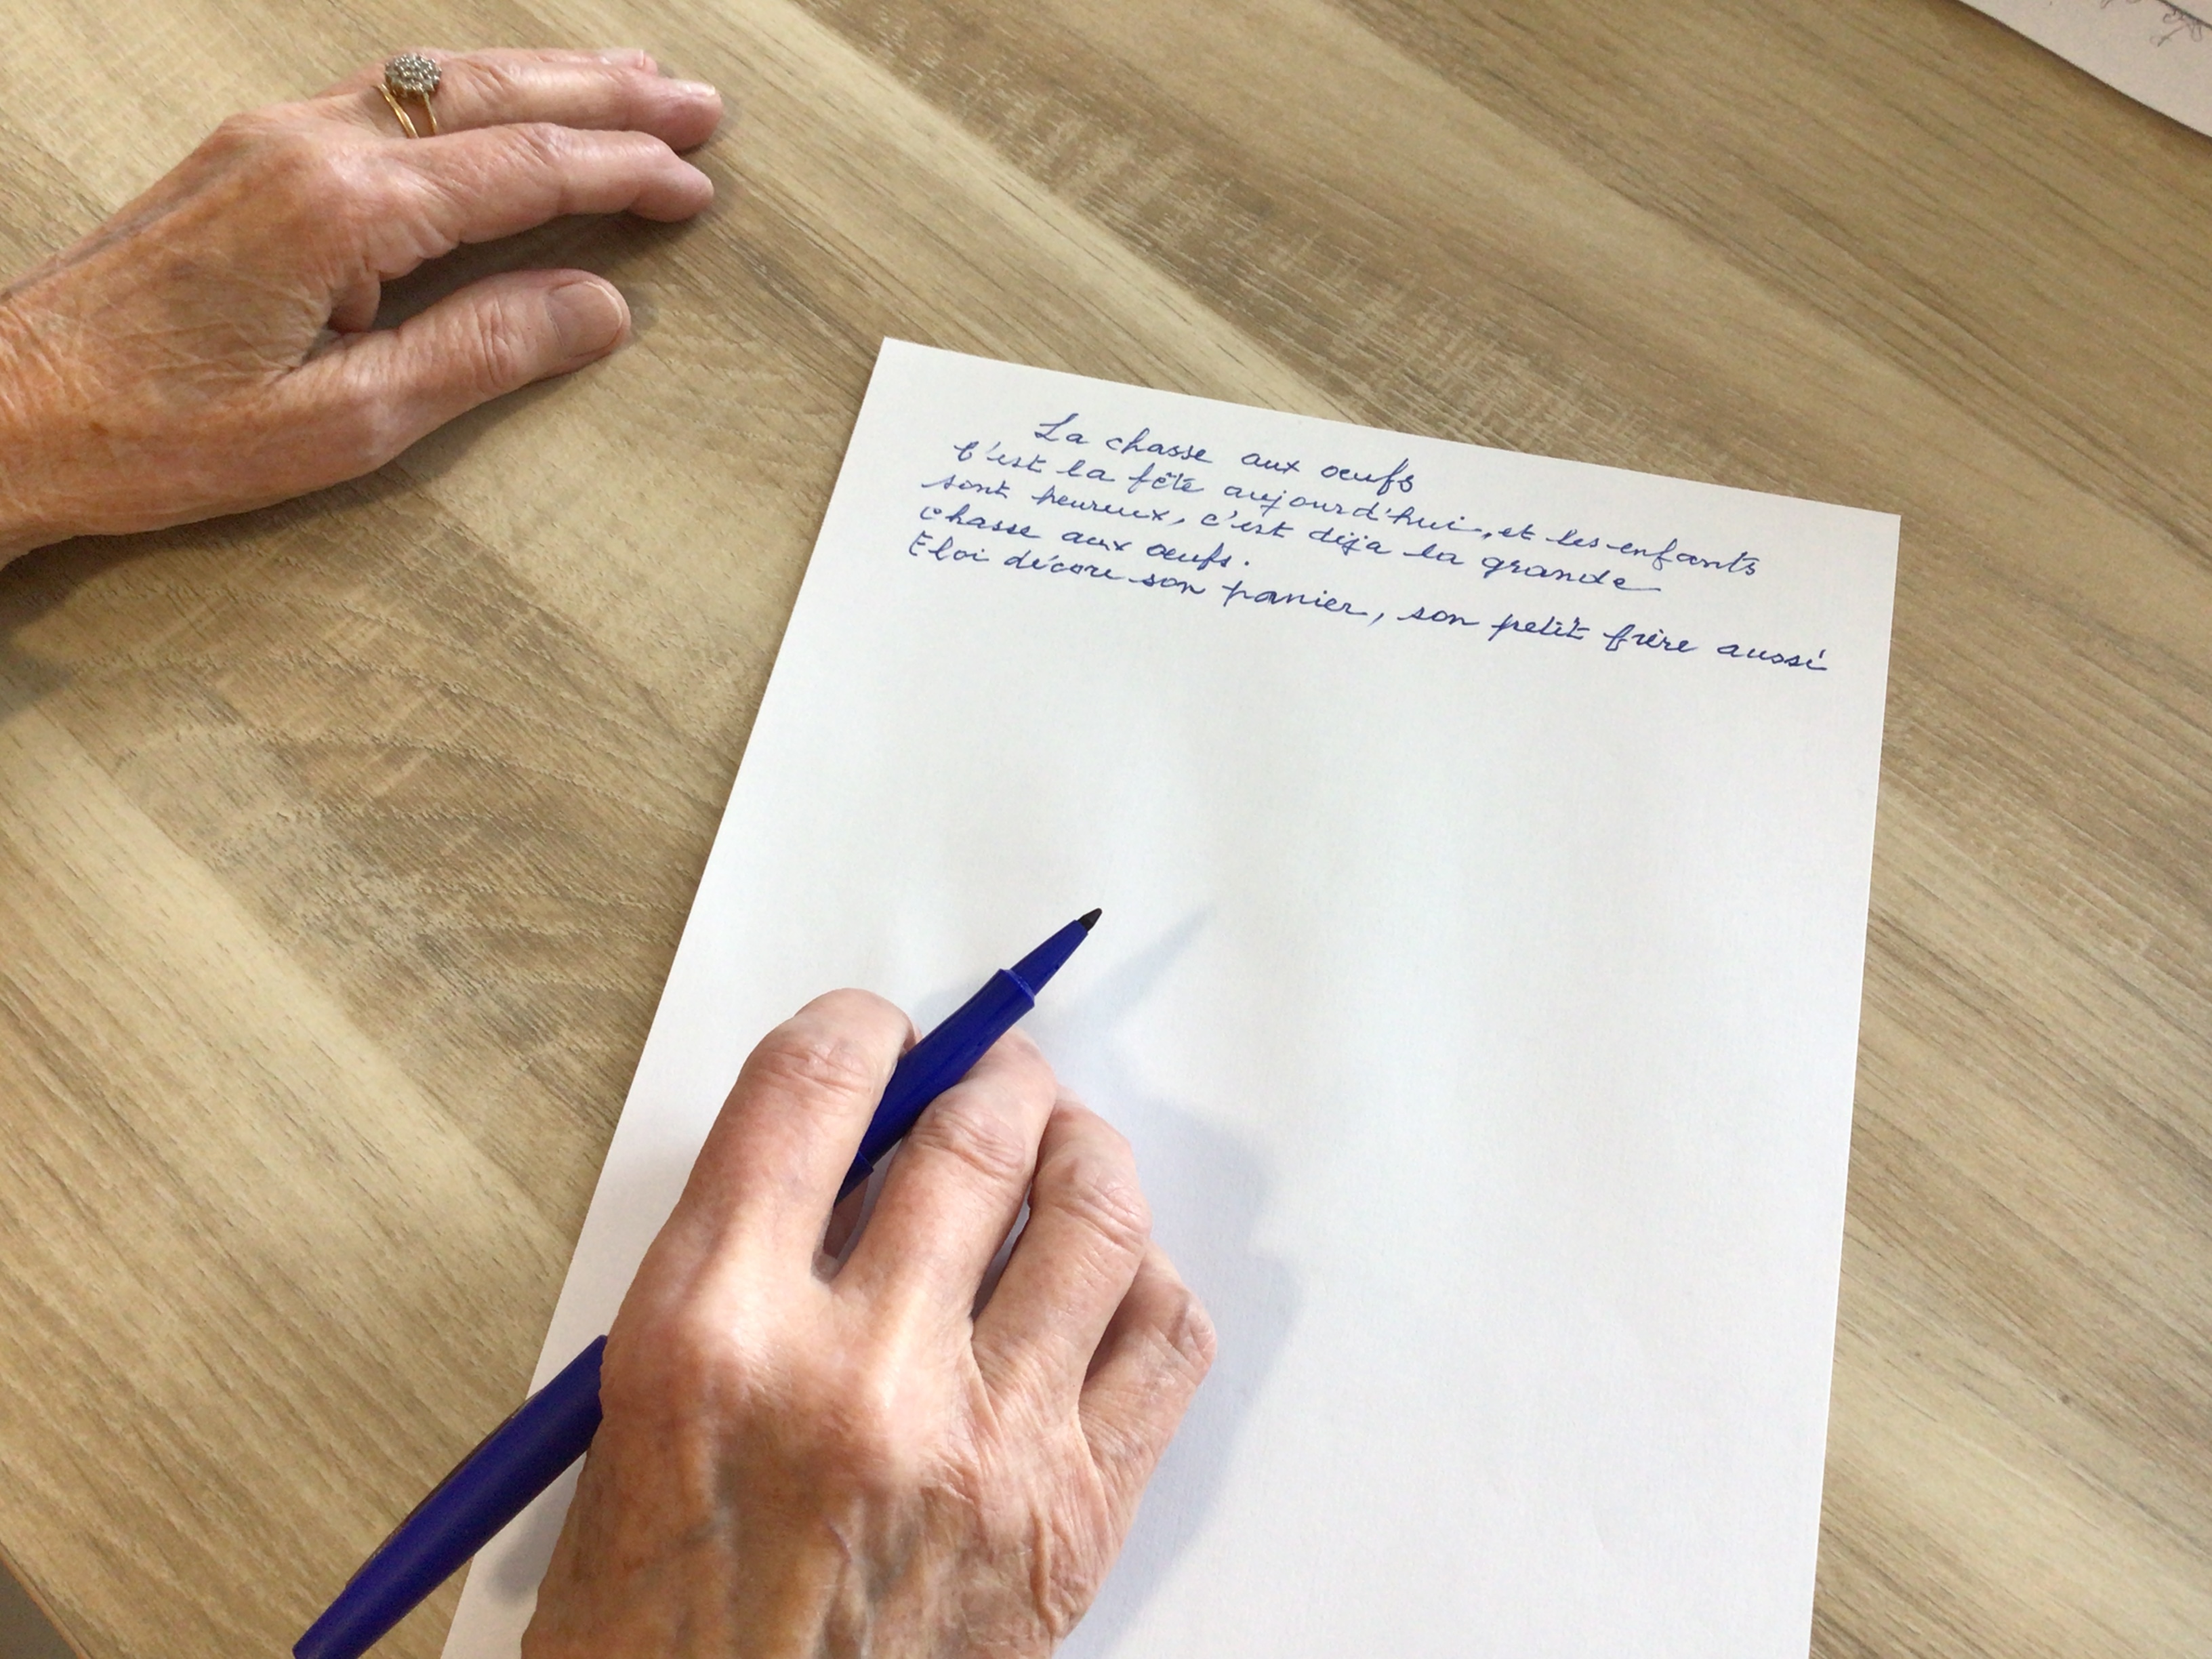 La chasse aux œufs
C'est la fête aujourd'hui, et les enfants
sont heureux, c'est déja la grande
chasse aux œufs.
Eloi décore son panier, son petit frère aussi